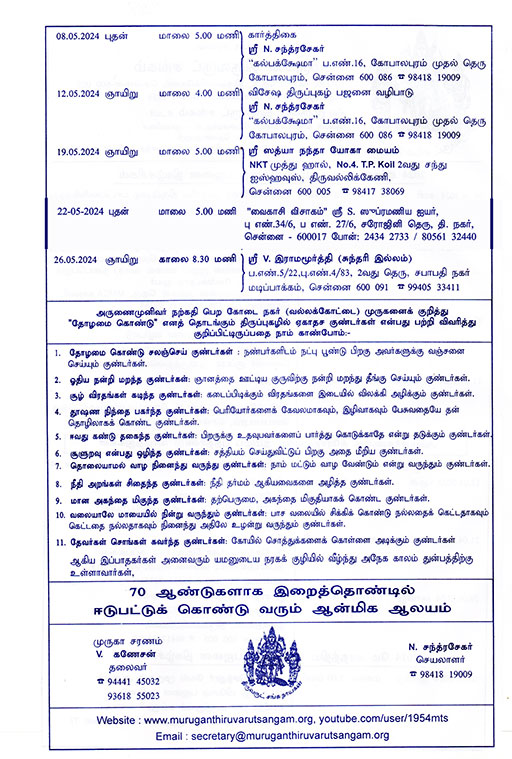 08.05.2024 புதன் மாலை 5.00 மணி கார்த்திகை
ஸ்ரீ N. சந்த்ரசேகர்
"கல்பக்ஷேமா" ப.எண்.16, கோபாலபுரம் முதல் தெரு
கோபாலபுரம், சென்னை 600 086 ☎ 98418 19009
12.05.2024 ஞாயிறு மாலை 4.00 மணி விசேஷ திருப்புகழ் பஜனை வழிபாடு
ஸ்ரீ N. சந்த்ரசேகர்
"கல்பக்ஷேமா" ப.எண்.16, கோபாலபுரம் முதல் தெரு
கோபாலபுரம், சென்னை 600 086 ☎ 98418 19009
19.05.2024 ஞாயிறு மாலை 5.00 மணி ஸ்ரீ ஸத்யா நந்தா யோகா மையம்
NKT முத்து ஹால், No.4. T.P. Koil 2வது சந்து
ஐஸ்ஹவுஸ், திருவல்லிக்கேணி,
சென்னை 600 005 ☎ 98417 38069
22-05-2024 புதன் மாலை 5.00 மணி "வைகாசி விசாகம்" ஸ்ரீ S. ஸுப்ரமணிய ஐயர்,
பு எண்.34/6, ப எண். 27/6, சரோஜினி தெரு, தி. நகர்,
சென்னை - 600017 போன்: 2434 2733 / 80561 32440
26.05.2024 ஞாயிறு காலை 8.30 மணி ஸ்ரீ V. இராமமூர்த்தி (சுந்தரி இல்லம்)
ப.எண்.5/22,பு.எண்.4/83, 2வது தெரு, சபாபதி நகர்
மடிப்பாக்கம், சென்னை 600 091 ☎ 99405 33411
அருணைமுனிவர் நற்கதி பெற கோடை நகர் (வல்லக்கோட்டை) முருகனைக் குறித்து
"தோழமை கொண்டு" எனத் தொடங்கும் திருப்புகழில் ஏகாதச குண்டர்கள் என்பது பற்றி விவரித்து
குறிப்பிட்டிருப்பதை நாம் காண்போம்:-
1. தோழமை கொண்டு சலஞ்செய் குண்டர்கள் : நண்பர்களிடம் நட்பு பூண்டு பிறகு அவர்களுக்கு வஞ்சனை
செய்யும் குண்டர்கள்.
2. ஓதிய நன்றி மறந்த குண்டர்கள்: ஞானத்தை ஊட்டிய குருவிற்கு நன்றி மறந்து தீங்கு செய்யும் குண்டர்கள்.
3. சூழ் விரதங்கள் கடிந்த குண்டர்கள்: கடைப்பிடிக்கும் விரதங்களை இடையில் விலக்கி அழிக்கும் குண்டர்கள்.
4. தூஷண நிந்தை பகர்ந்த குண்டர்கள்: பெரியோர்களைக் கேவலமாகவும், இழிவாகவும் பேசுவதையே தன்
தொழிலாகக் கொண்ட குண்டர்கள்.
5. ஈவது கண்டு தகைந்த குண்டர்கள்: பிறருக்கு உதவுபவர்களைப் பார்த்து கொடுக்காதே என்று தடுக்கும் குண்டர்கள்.
6. சூளுறவு என்பது ஒழிந்த குண்டர்கள்: சத்தியம் செய்துவிட்டுப் பிறகு அதை மீறிய குண்டர்கள்.
7. தொலையாமல் வாழ நினைந்து வருந்து குண்டர்கள்: நாம் மட்டும் வாழ வேண்டும் என்று வருந்தும் குண்டர்கள்.
8. நீதி அறங்கள் சிதைந்த குண்டர்கள்: நீதி தர்மம் ஆகியவைகளை அழித்த குண்டர்கள்.
9. மான அகந்தை மிகுந்த குண்டர்கள்: தற்பெருமை, அகந்தை மிகுதியாகக் கொண்ட குண்டர்கள்.
10. வலையாலே மாயையில் நின்று வருந்தும் குண்டர்கள்: பாச வலையில் சிக்கிக் கொண்டு நல்லதைக் கெட்டதாகவும்
கெட்டதை நல்லதாகவும் நினைத்து அதிலே உழன்று வருந்தும் குண்டர்கள்.
11. தேவர்கள் சொங்கள் கவர்ந்த குண்டர்கள்: கோயில் சொத்துக்களைக் கொள்ளை அடிக்கும் குண்டர்கள்
ஆகிய இப்பாதகர்கள் அனைவரும் யமனுடைய நரகக் குழியில் வீழ்ந்து அநேக காலம் துன்பத்திற்கு
உள்ளாவார்கள்.
70 ஆண்டுகளாக இறைத்தொண்டில்
ஈடுபட்டுக் கொண்டு வரும் ஆன்மிக ஆலயம்
முருகா சரணம்
V. கணேசன்
தலைவர்
☎ 94441 45032
93618 55023
திருவருட் சங்க நாயகன்
N. சந்த்ரசேகர்
செயலாளர்
☎ 98418 19009
Website : www.muruganthiruvarutsangam.org, youtube.com/user/1954mts
Email : secretary@muruganthiruvarutsangam.org